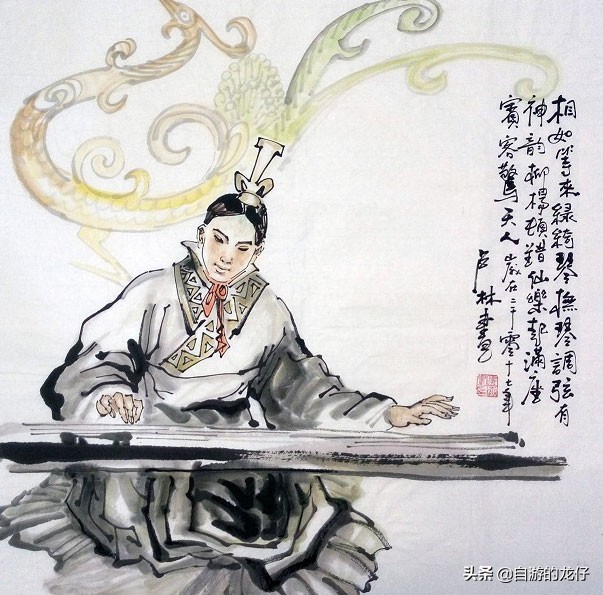 相如来緑綺琴撫琴調弦有
神韵抑揚頓錯仙樂起滿座
賓客驚天人 歲在二千零十七年
卢林
头条 @自游的龙仔